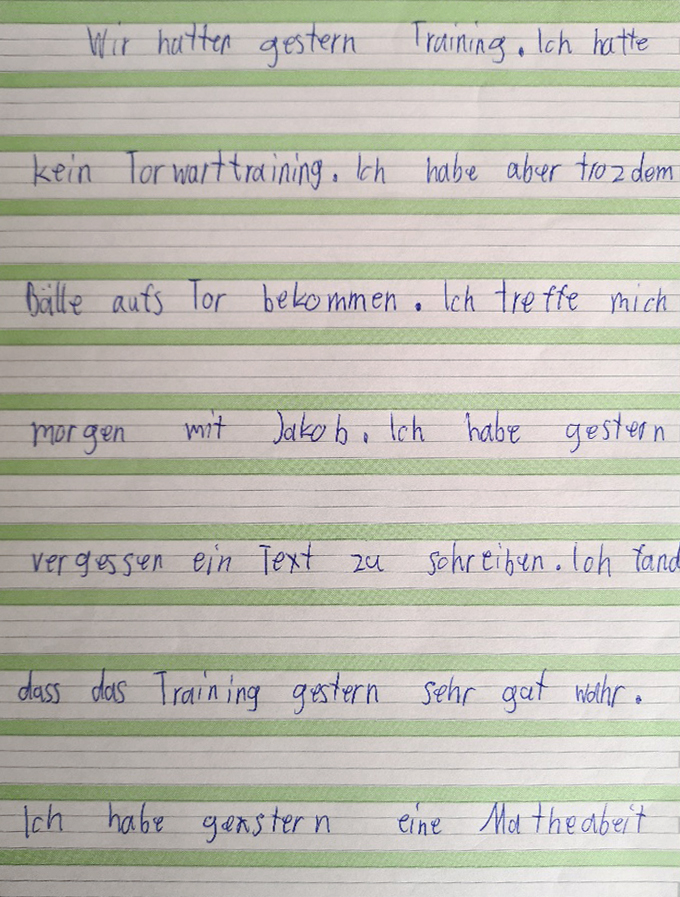 Wir hatten gestern Training. Ich hatte
kein Torwarttraining. Ich habe aber trozdem
Bälle aufs Tor bekommen. Ich treffe mich
morgen mit Jakob. Ich habe gestern
vergessen ein Text zu schreiben. Ich fand
dass das Training gestern sehr gut wahr.
Ich habe genstern eine Matheabeit